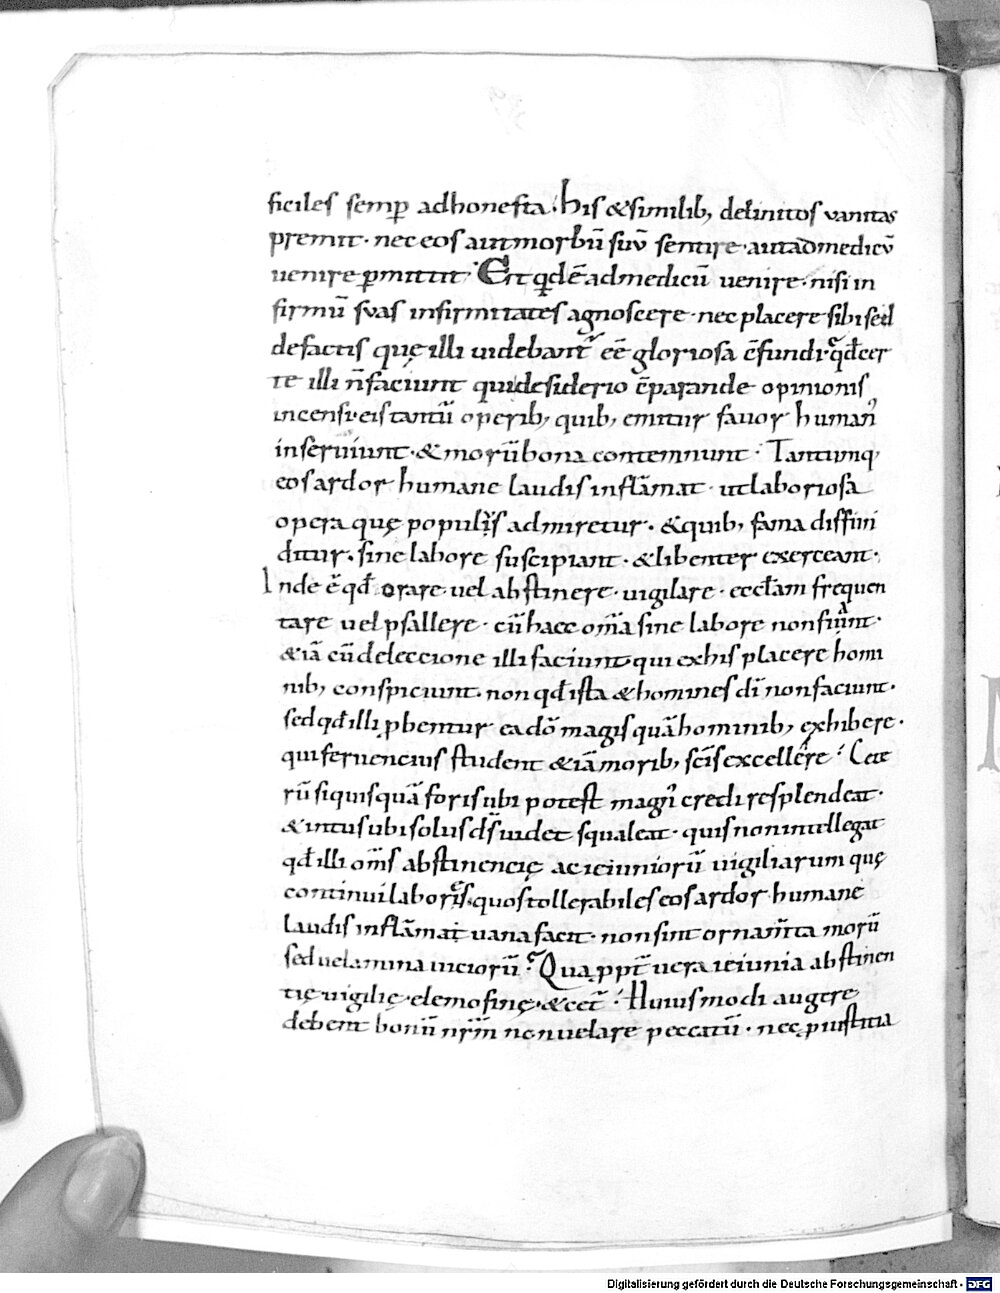 ficiles semꝑ adhonesta. his &similib; delinitos vanitas
premit· nec eos aut morbū suū sentire· aut ad medicū
uenire ꝑmittit· Et qđ ē ad medicū uenire· nisi in
firmū suas infirmitates agnoscere· nec placere sibi sed
de factis quę illi uidebant̄ eē gloriosa c̄fundi· qđ cer
te illi n̄ faciunt qui desiderio c̄parande opinionis
incensi eis tantū operib; quib; emitur fauor human᾿
inseruiunt· & morū bona contemnunt· Tantumq;
eos ardor humane laudis inflāmat· ut laboriosa
opera quę populis admiretur· & quib; fama diffini
ditur· sine labore suscipiant· & libenter exerceant·
Inde ē qđ orare uel abstinere· uigilare· eccl̄am frequen
tare uel psallere· cū haec om̄a sine labore non fiunt·
&iā cū deleccione illi faciunt qui ex his placere homi
nib; conspiciunt· non qđ ista & homines di non faciunt·
sed qđ illi ꝓbentur ea dō magis quā hominib; exhibere·
qui feruencius student &iā morib; sc̄is excellere· Cete
rū si quisquā foris ubi potest magn᾿ credi resplendeat·
& intus ubi solus ds̄ uidet squaleat· quis non intellegat
qđ illi om̄s abstinencię ac ieiuniorū uigiliarum quę
continui labores· quos tollerabiles eos ardor humane
laudis inflāmat uana facit· non sint ornam̄ta morū
sed uelamina uiciorū· Qua ꝓpt̄ uera ieiunia abstinen
tię uigilię· elemosinę· & cet̄· Huiusmodi augere
debent bonū nr̄m non uelare peccatū· nec ꝓ iustitia
Digitalisierung gefördert durch die Deutsche Forschungsgemeinschaft - DFG